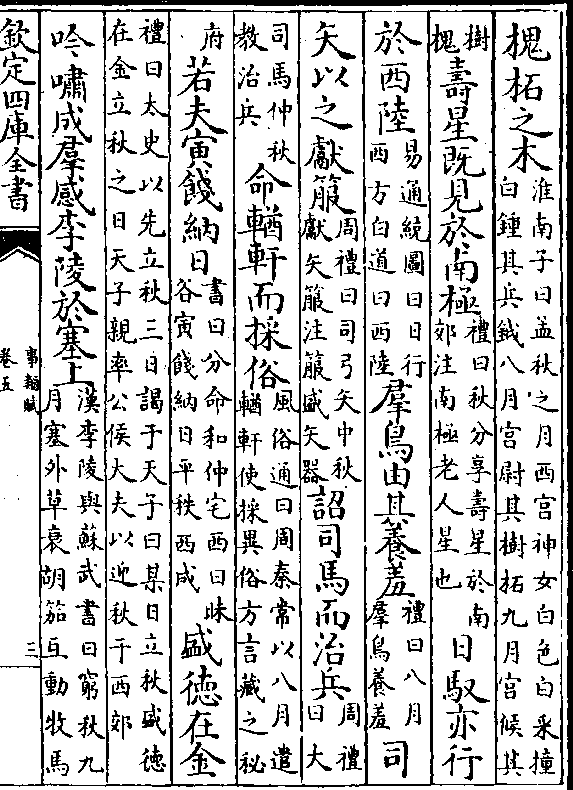 槐柘之木淮南子曰孟秋之月西宫神女白色白采撞白鍾其兵鉞八月宫尉其樹柘九月宫候其
樹槐壽星既見於南極禮曰秋分享壽星於南郊注南極老人星也日馭亦行
於西陸易通統圖曰日行西方白道曰西陸羣鳥由其養羞禮曰八月羣鳥養羞司
矢以之獻箙周禮曰司弓矢中秋獻矢箙注箙盛矢器詔司馬而治兵周禮曰大
司馬仲秋教治兵命輶軒而採俗風俗通曰周秦常以八月遣輶軒使採異俗方言藏之秘
府若夫寅餞納日書曰分命和仲宅西曰昧谷寅餞納日平秩西成盛徳在金
禮曰太史以先立秋三日謁于天子曰某日立秋盛徳在金立秋之日天子親率公侯大夫以迎秋于西郊
吟嘯成羣感李陵於塞上漢李陵與蘇武書曰窮秋九月塞外草衰胡笳互動牧馬
欽定四庫全書
事類賦
卷五
三